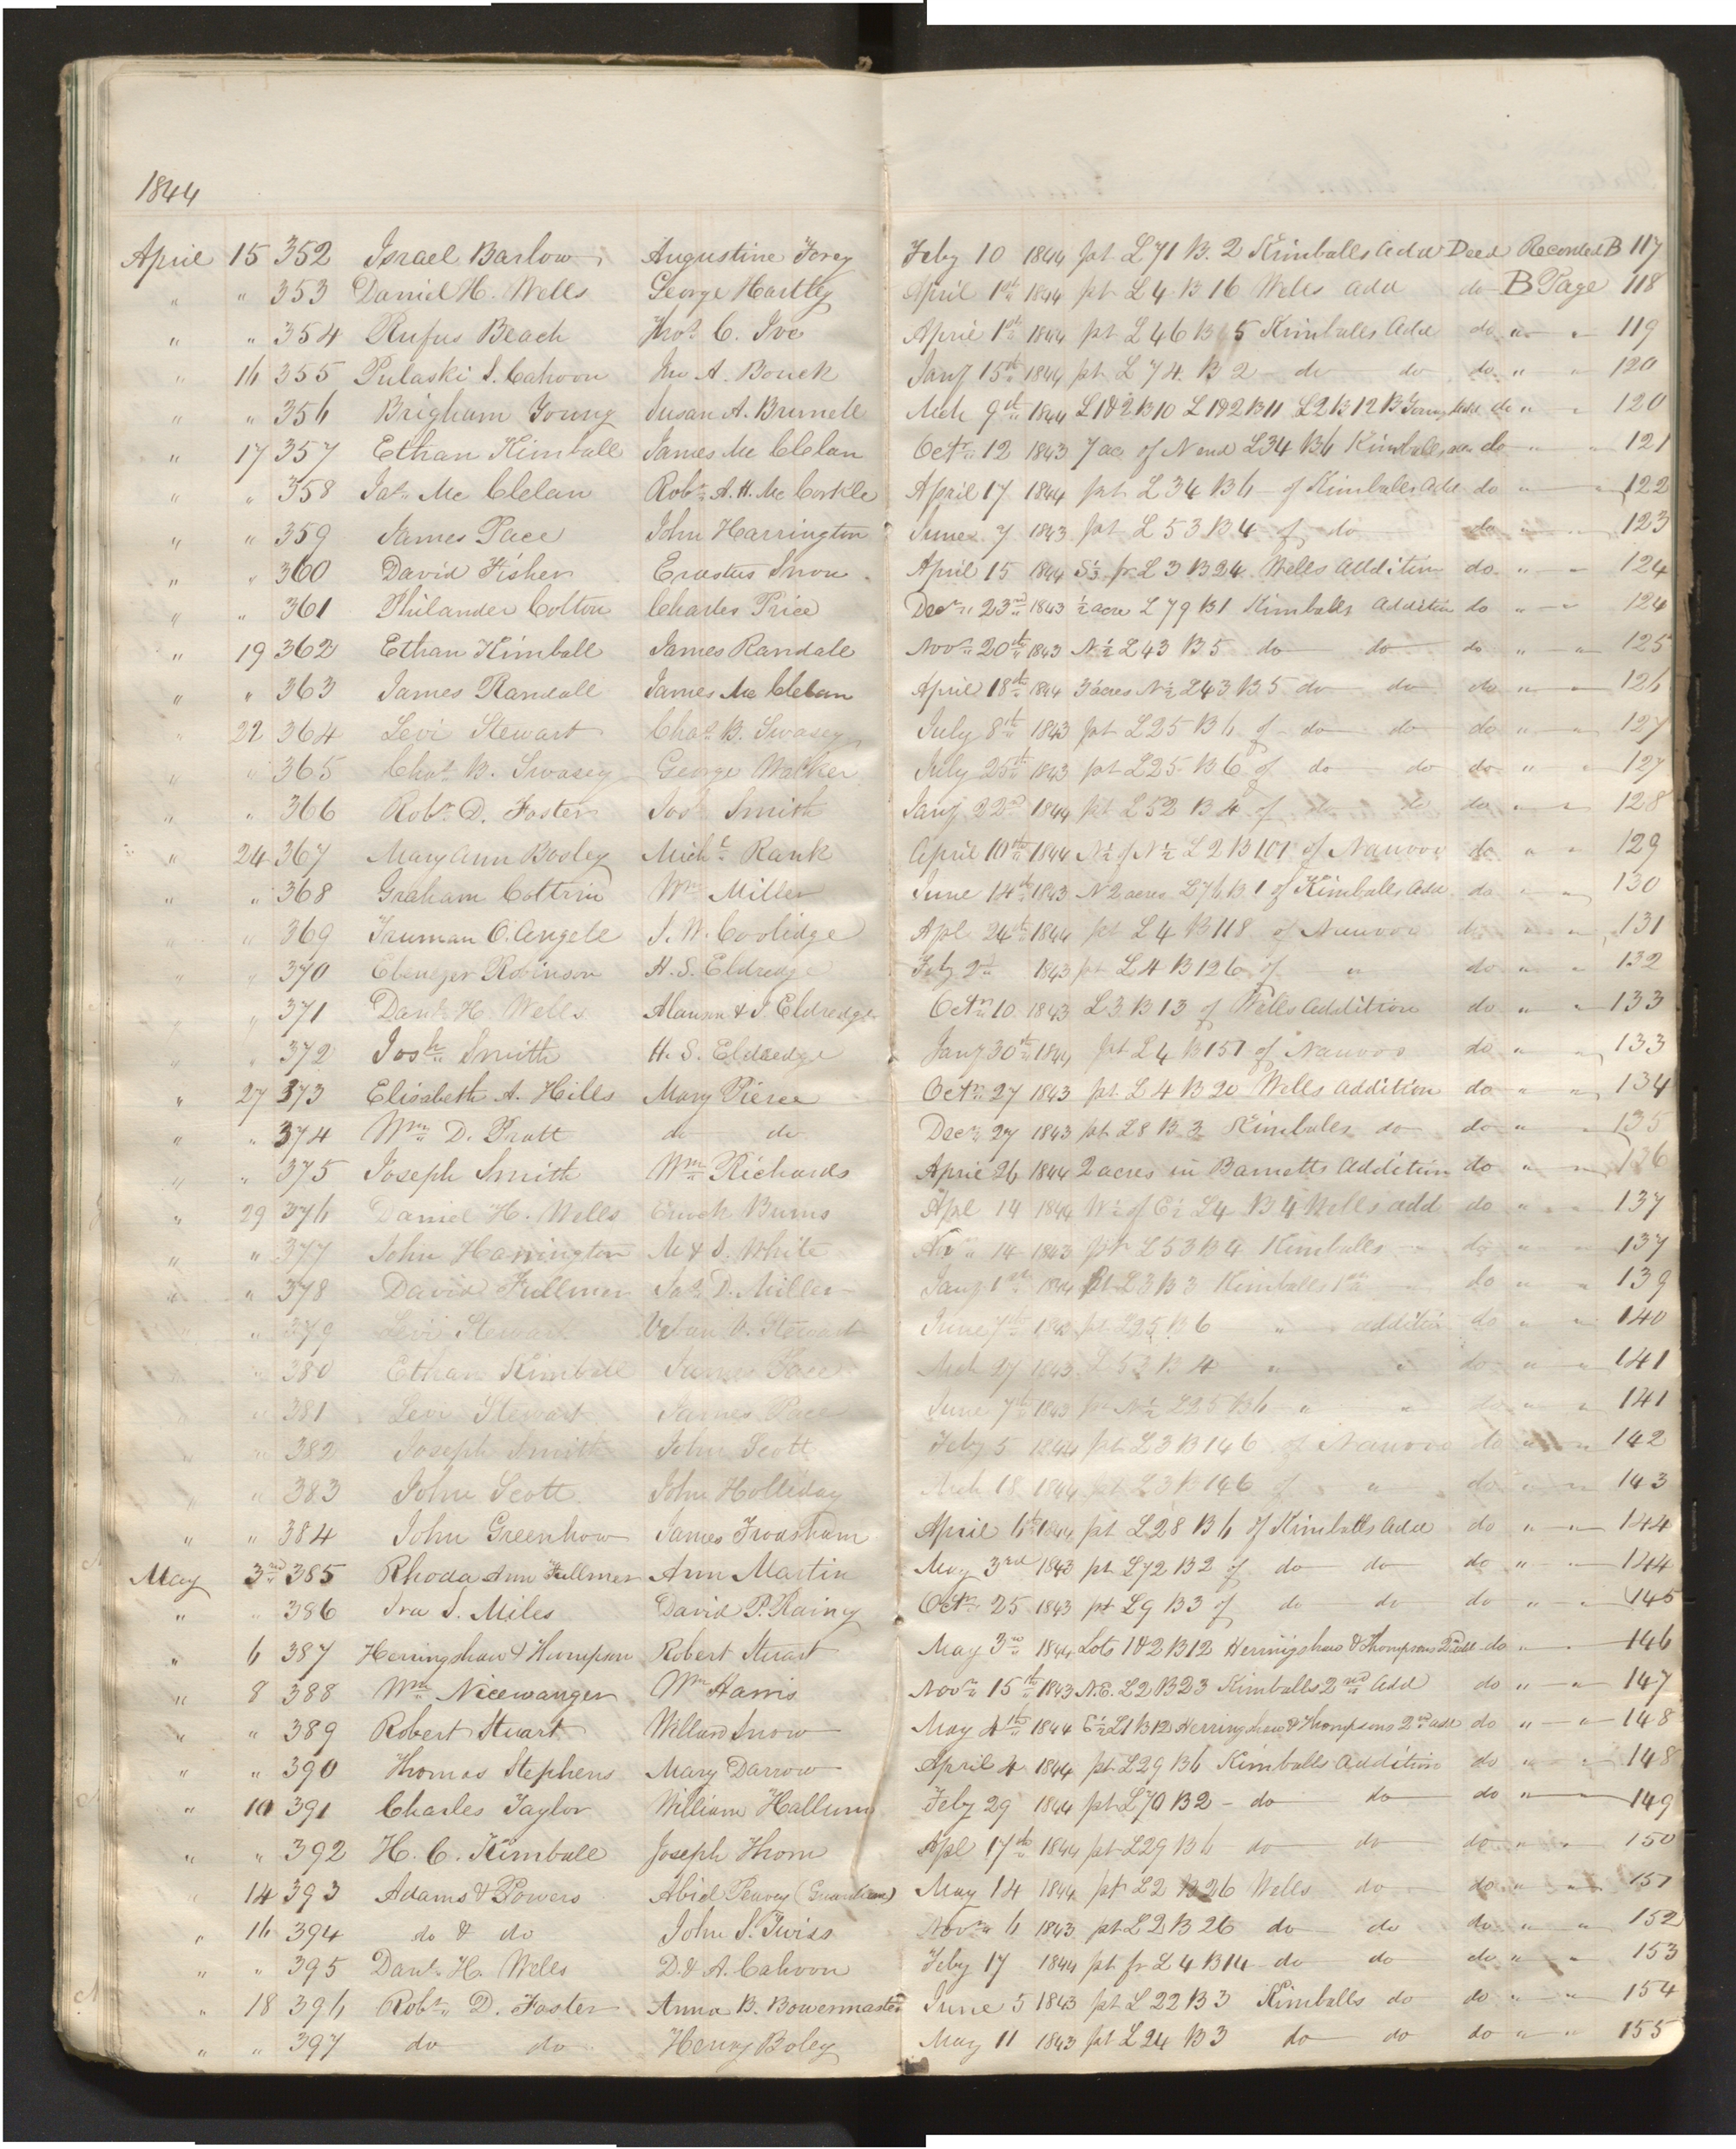 1844
April 15 352 Israel Barlow Augustine Forey Feby 10 1844 pt L 71 B. 2 Kimballs Add Deed Recorded B 117
" " 353 Daniel H. Wells George Hartley April 1st 1844 pt L 4 B 16 Wells add do B Page 118
" " 354 Rufus Beach Thos. C. Ive April 1st 1844 pt L 46 B 5 Kimballs Add do " " 119
" 16 355 Pulaski S. Cahoon Jno A. Bouck Jany 15th 1844 pt L 74. B 2 do do do " " 120
" " 356 Brigham Young Susan A. Brunell Mch 9th 1844 L 1 & 2 B 10 L 1 & 2 B 11 L 2 B 12 B Young Add do " " 120
" 17 357 Ethan Kimball James Mc Clelan Octr 12 1843 7 acs of N end L 34 B 6 Kimballs add do " " 121
" " 358 Jas. Mc Clelan Robt. A. H. Mc Corkle April 17 1844 pt L 34 B 6 of Kimballs Add do " " 122
" " 359 James Pace John Harrington June 7 1843 pt L 53 B 4 of do do " " 123
" " 360 David Fisher Erastus Snow April 15 1844 S 1/3 fr L 3 B 24 Wells Addition do " " 124
" " 361 Philander Colton Charles Price Decr 23rd 1843 1/2 acre L 79 B 1 Kimballs Addition do " " 124
" 19 362 Ethan Kimball James Randall Novr 20th 1843 N 1/2 L 43 B 5 do do do " " 125
" " 363 James Randall James Mc Clelan April 18th 1844 3 acres N 1/2 L 43 B. 5 do do do " " 126
" 22 364 Levi Stewart Chas. B. Swasey July 8th 1843 pt L 25 B 6 of do do do " " 127
" " 365 Chas. B. Swasey George Walker July 25th 1843 pt L 25 B 6 of do do do " " 127
" " 366 Robt. D. Foster Jos. Smith Jany 22nd 1844 pt L 52 B 4 of do do do " " 128
" 24 367 Mary Ann Bosley Michl. Rank April 10th 1844 N 1/2 of N 1/2 L 2 B 101 of Nauvoo do " " 129
" " 368 Graham Coltrin Wm Miller June 14th 1843 N 2 acres L 76 B 1 of Kimballs Add do " " 130
" " 369 Truman O. Angell J. W. Coolidge Apl 24th 1844 pt L 4 B 118 of Nauvoo do " " 131
" " 370 Ebenezer Robinson H. S. Eldredge Feby 2nd 1843 pt L 4 B 126 of " do " " 132
" " 371 Danl. H. Wells Alanson & J. Eldredge Octr 10 1843 L 3 B 13 of Wells Addition do " " 133
" " 372 Josh. Smith H. S. Eldredge Jany 30th 1844 pt L 4 B 151 of Nauvoo do " " 133
" 27 373 Elisabeth A. Hills Mary Pierce Octr 27 1843 pt L 4 B 20 Wells Addition do " " 134
" " 374 Wm D. Pratt do do Decr 27 1843 pt L 8 B 3 Kimballs do do " " 135
" " 375 Joseph Smith Wm Richards April 26 1844 2 acres in Barnetts Addition do " " 136
" 29 376 Daniel H. Wells Enoch Burns Apl 14 1844 W 1/2 of E 1/2 L 4 B 4 Wells add do " " 137
" " 377 John Harrington M & S. White Nov 14 1843 pt L 53 B 4 Kimballs " do " " 137
" " 378 David Fullmer Jas. D. Miller Jany 1st 1844 pt L 3 B 3 Kimballs 1st do " " 139
" " 379 Levi Stewart Stewart June 7th 1843 pt L 25 B 6 " addition do " " 140
" " 380 Ethan Kimball James Pace Mch 27 1843 L 53 B 4 " " do " " 141
" " 381 Levi Stewart James Pace June 7th 1843 pt N 1/2 L 25 B 6 " " do " " 141
" " 382 Joseph Smith John Scott Feby 5 1844 pt L 3 B 146 of Nauvoo do " " 142
" " 383 John Scott John Holliday Mch 18 1844 pt L 3 B 146 of " " do " " 143
" " 384 John Greenhow James Frodsham April 6th 1844 pt L 28 B 6 of Kimballs Add do " " 144
May 3rd 385 Rhoda Ann Fullmer Ann Martin May 3rd 1843 pt L 72 B 2 of do do do " " 144
" " 386 Ira S. Miles David P. Rainy Octr 25 1843 pt L 9 B 3 of do do do " " 145
" 6 387 Herringshaw & Thompson Robert Stuart May 3rd 1844 Lots 1 & 2 B 12 Herringshaw & Thompsons 2nd add do " " 146
" 8 388 Wm Nicewanger Wm Harris Novr 15th 1843 N. E. L 2 B 23 Kimballs 2nd Add do " " 147
" " 389 Robert Stuart Willard Snow May 4th 1844 E 1/2 L 1 B 12 Herringshaw & Thompsons 2nd add do " " 148
" " 390 Thomas Stephens Mary Darrow April 4 1844 pt L 29 B 6 Kimballs Addition do " " 148
" 10 391 Charles Taylor William Hallum Feby 29 1844 pt L 70 B 2 do do do " " 149
" " 392 H. C. Kimball Joseph Thorn Apl 17th 1844 pt L 29 B 6 do do do " " 150
" 14 393 Adams & Powers Abiel Peavey (Guardian) May 14 1844 pt L 2 B 26 Wells do do " " 151
" 16 394 do & do John S. Twiss Novr 6 1843 pt L 2 B 26 do do do " " 152
" " 395 Danl. H. Wells D. & A. Cahoon Feby 17 1844 pt fr L 4 B 14 do do do " " 153
" 18 396 Robt. D. Foster Anna B. Bowermaster June 5 1843 pt L 22 B 3 Kimballs do do " " 154
" " 397 do do Henry Boley May 11 1843 pt L 24 B 3 do do do " " 155